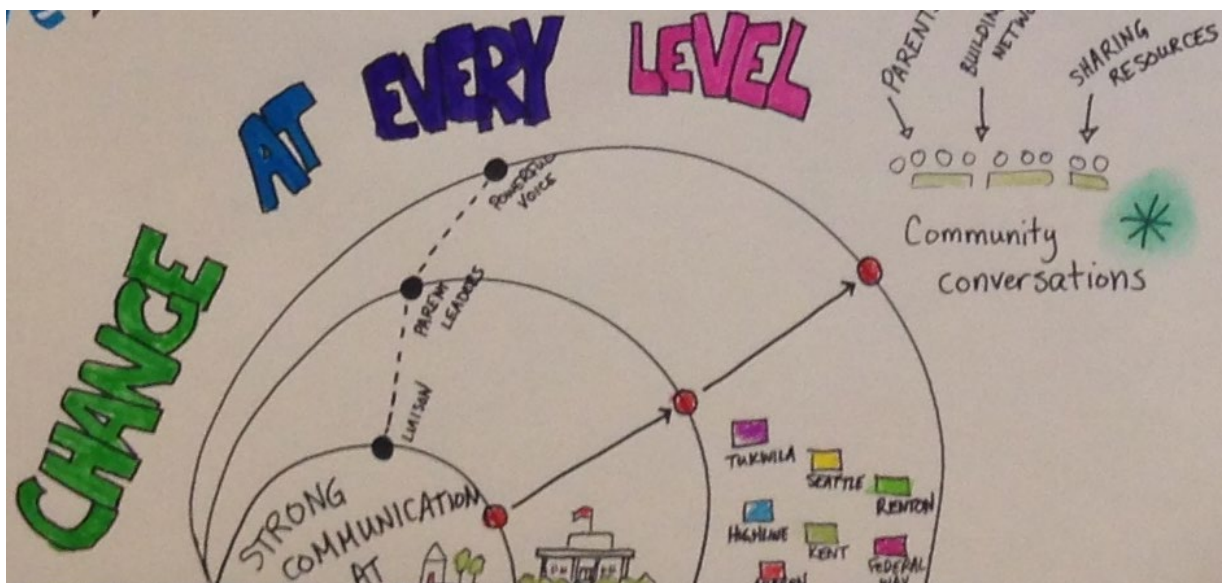 CHANGE AT EVERY LEVEL
PARENTS
BUILDING
NETW
SHARING
RESOURCES
Community
conversations
POWERFUL
VOICE
PARENT
LEADERS
LIAISON
STRONG
COMMUNICATION
AT
TUKWILA
SEATTLE
RENTON
HIGHLINE
KENT
FEDERAL
WAY